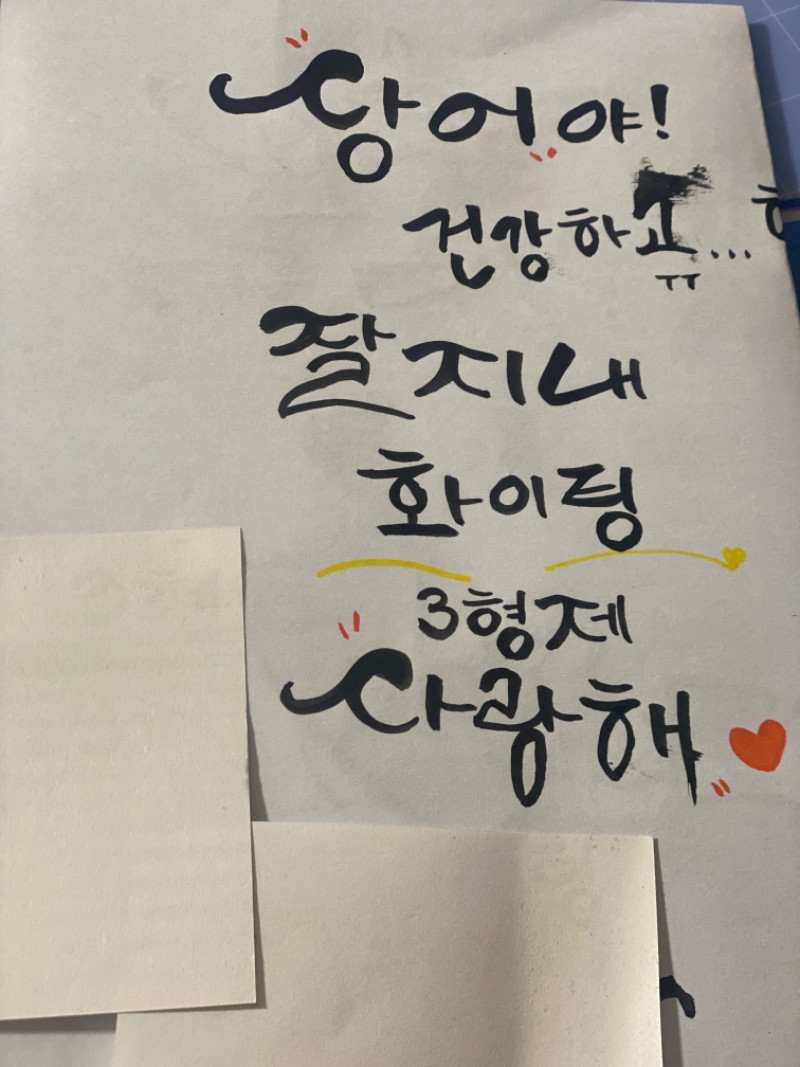 상어야!
건강하고...
ㅠ
잘지내
화이팅
3형제
사랑해